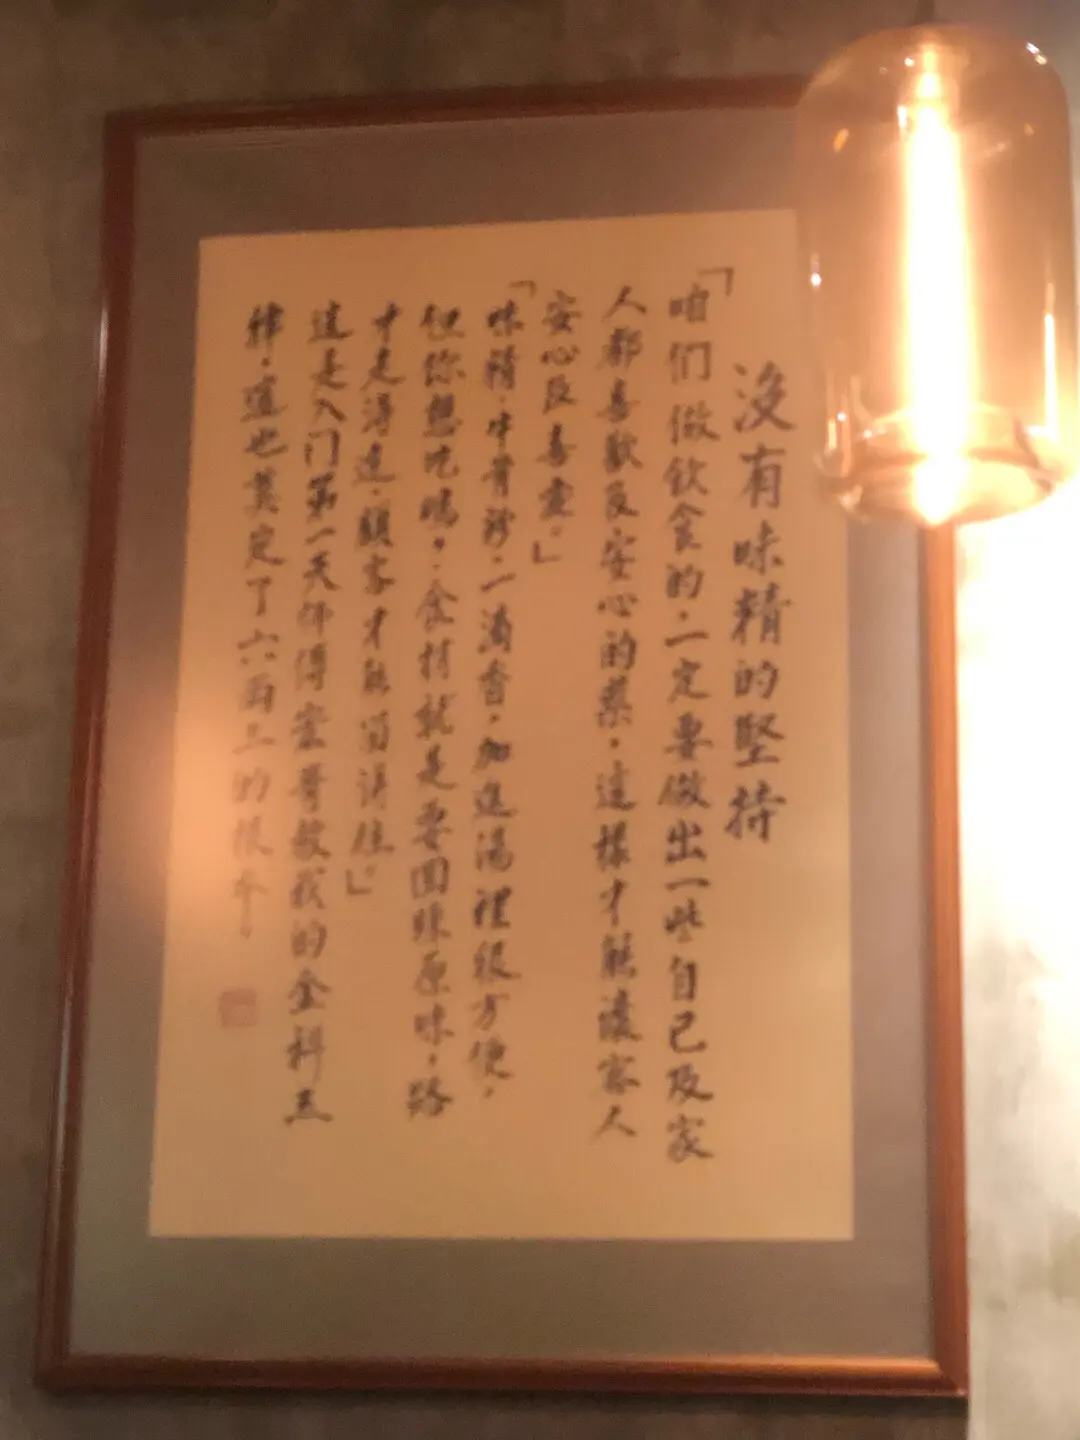 沒有味精的堅持
「咱们做飲食的,一定要做出一些自己及家
人都喜歡及安心的菜,這樣才能讓家人
安心及喜愛。」
「味精,牛骨粉,一滴香,加進湯裡很方便,
但你想吃嗎?食材就是要回歸原味,路
才走得遠,顧客才能留得住。」
這是入门第一天師傅崇哥教我的金科玉
律,這也奠定了六両三的根本